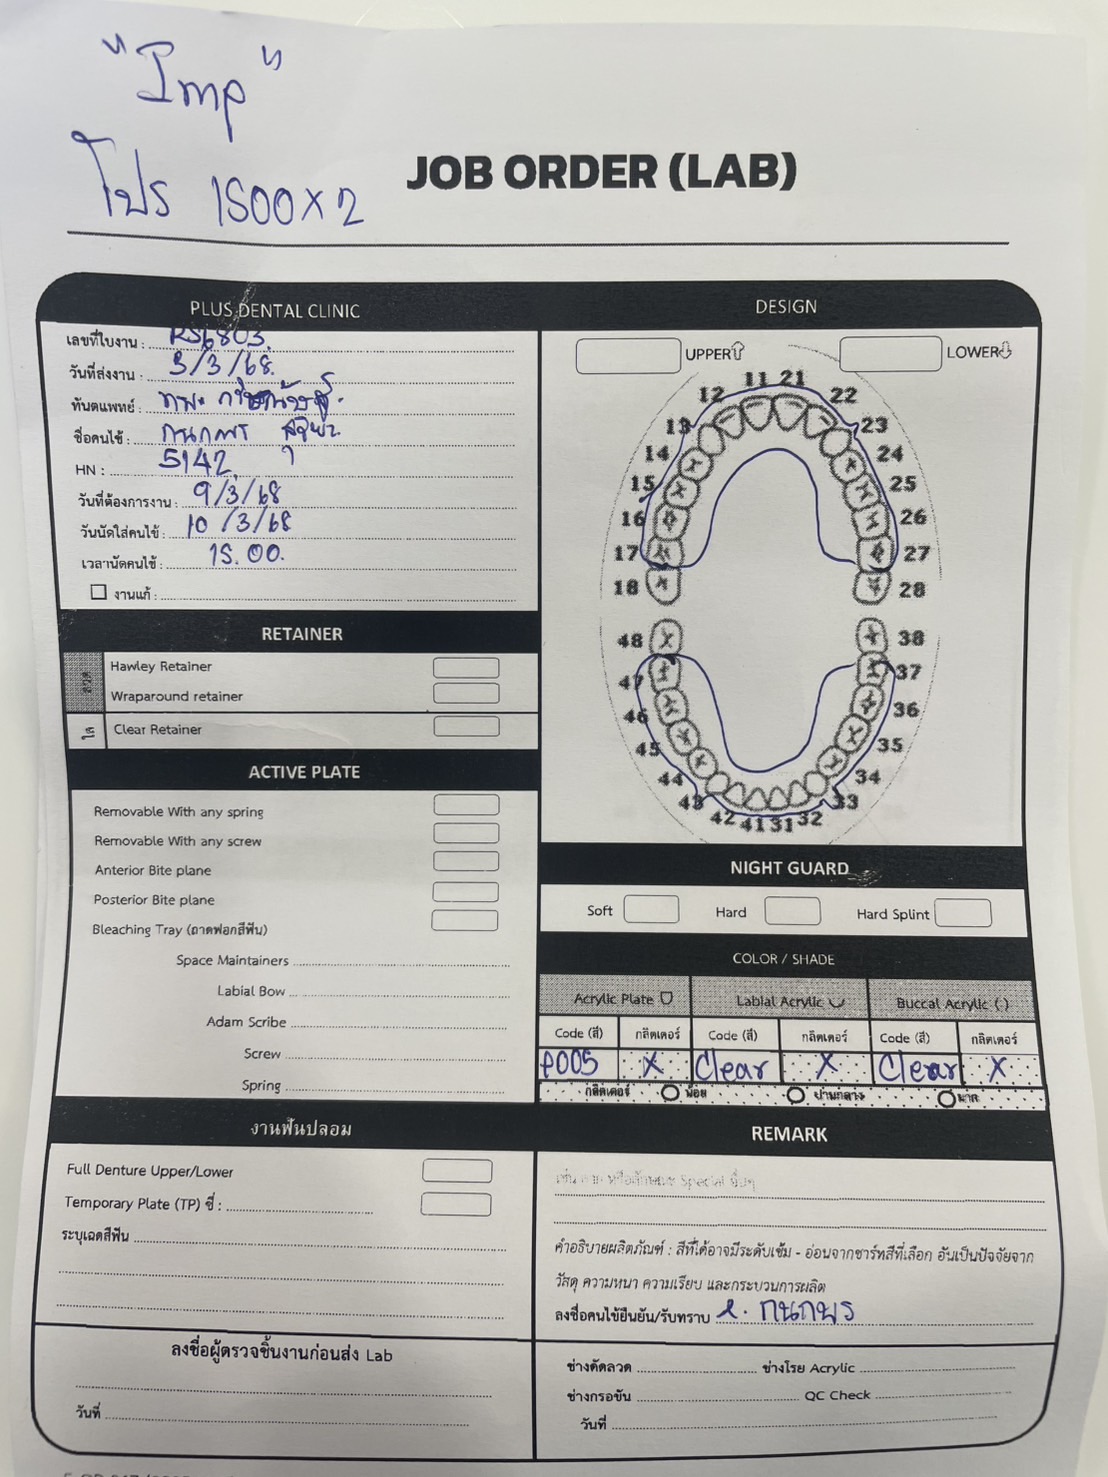 "Imp"
โปร 1500 x 2
JOB ORDER (LAB)
PLUS DENTAL CLINIC
เลขที่ใบงาน : RS6803.
วันที่ส่งงาน : 3/3/68.
ทันตแพทย์ : ทพ.
ชื่อคนไข้ : กนกพร
HN : 5142
วันที่ต้องการงาน : 9/3/68
วันนัดใส่คนไข้ : 10/3/68
เวลานัดคนไข้ : 15.00.
งานแก้ :
RETAINER
ลวด
Hawley Retainer
Wraparound retainer
ใส
Clear Retainer
ACTIVE PLATE
Removable With any spring
Removable With any screw
Anterior Bite plane
Posterior Bite plane
Bleaching Tray (ถาดฟอกสีฟัน)
Space Maintainers
Labial Bow
Adam Scribe
Screw
Spring
งานฟันปลอม
Full Denture Upper/Lower
Temporary Plate (TP) ซี่ :
ระบุเฉดสีฟัน
ลงชื่อผู้ตรวจชิ้นงานก่อนส่ง Lab
วันที่
DESIGN
UPPER LOWER
11 21
12 22
13 23
14 24
15 25
16 26
17 27
18 28
48 38
47 37
46 36
45 35
44 34
43 33
42 41 31 32
NIGHT GUARD
Soft Hard Hard Splint
COLOR / SHADE
Acrylic Plate Labial Acrylic Buccal Acrylic ( )
Code (สี) กลิตเตอร์ Code (สี) กลิตเตอร์ Code (สี) กลิตเตอร์
P005 X Clear X Clear X
กลิตเตอร์ น้อย ปานกลาง มาก
REMARK
หรือลักษณะ Special อื่นๆ
คำอธิบายผลิตภัณฑ์ : สีที่ได้อาจมีระดับเข้ม - อ่อนจากชาร์ทสีที่เลือก อันเป็นปัจจัยจาก
วัสดุ ความหนา ความเรียบ และกระบวนการผลิต
ลงชื่อคนไข้ยืนยัน/รับทราบ กนกพร
ช่างดัดลวด ช่างโรย Acrylic
ช่างกรอขัน QC Check
วันที่